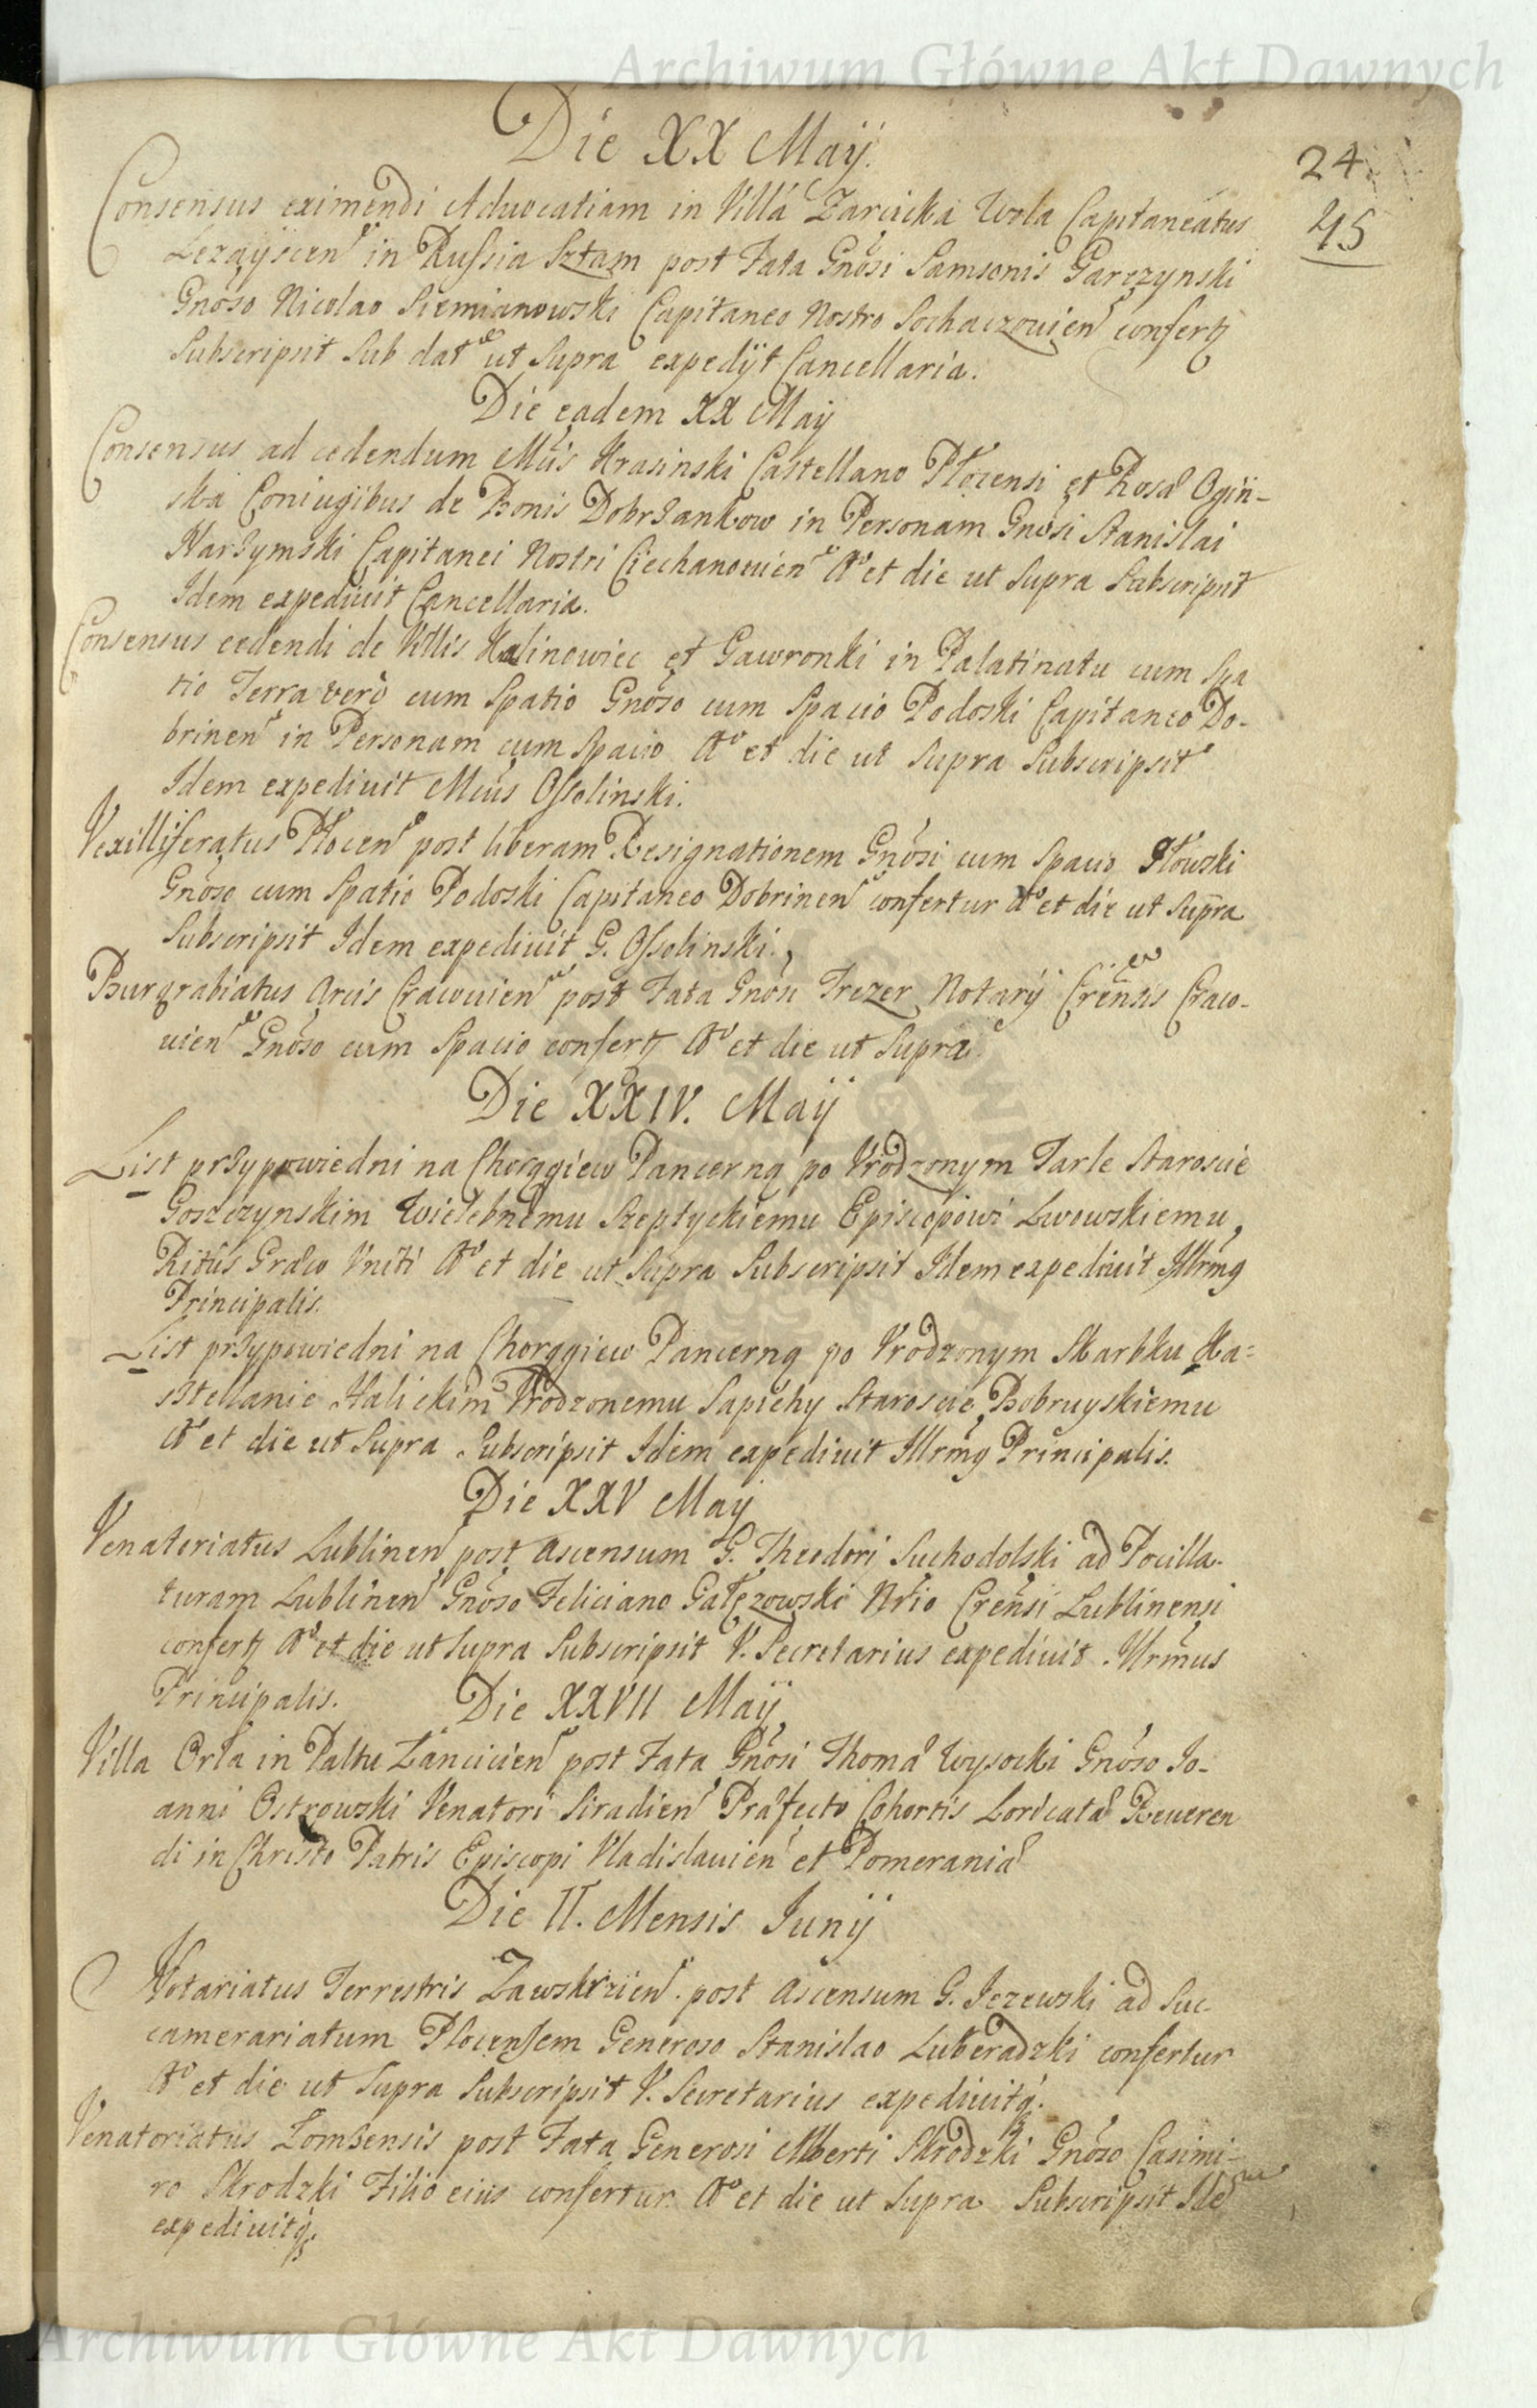 Archiwum Główne Akt Dawnych
Die XX Maÿ.
24
45
Consensus eximendi Advocatiam in Villa Zarcicka Wola Capitaneatus
Lezaÿscen in Russia Sztam post Fata Gnosi Samsonis Garczynski
Gnoso Nicolao Siemianowski Capitaneo Nostro Sochaczovien confertz
Subscripsit Sub dat ut Supra expedijt Cancellaria.
Die eadem XX Maÿ
Consensus ad cedendum Mcis Krasinski Castellano Płocensi et Rosa Ogiń-
ska Coniugibus de Bonis Dobrzankow in Personam Gnosi Stanislai
Narzymski Capitanei Nostri Ciechanovien Ao et die ut Supra Subscripsit
Idem expedivit Cancellaria.
Consensus cedendi de Villis Kalinowiec et Gawronki in Palatinatu cum Spa
tio Terra verò cum Spatio Gnoso cum Spacio Podoski Capitaneo Do-
brinen in Personam cum Spacio Ao et die ut Supra Subscripsit
Idem expedivit Mcus Ossolinski.
Vexilliferatus Płocen post liberam Resignationem Gnosi cum Spacio Płowski
Gnoso cum Spatio Podoski Capitaneo Dobrinen confertur Ao et die ut Supra
Subscripsit Idem expedivit G. Ossolinski.
Burgrabiatus Arcis Cracovien post Fata Gnosi Trezer Notarÿ Crensis Craco-
vien Gnoso cum Spacio confertz Ao et die ut Supra.
Die XXIV. Maÿ
List przypowiedni na Chorągiew Pancerną po Vrodzonym Tarle Staroscie
Goszczynskim Wielebnemu Szeptyckiemu Episcopowi Lwowskiemu,
Ritûs Græco Vniti Ao et die ut Supra Subscripsit Idem expedivit Illrmg
Principalis.
List przypowiedni na Chorągiew Pancerną po Vrodzonym Skarbku Ka=
sztellanie Halickim Vrodzonemu Sapiehy Staroscie Bobruyskiemu
Ao et die ut Supra Subscripsit Idem expedivit Illrmg Principalis.
Die XXV Maÿ
Venatoriatus Lublinen post ascensum G. Theodori Suchodolski ad Pocilla-
turam Lublinen Gnoso Feliciano Gałęzowski Nrio Crensi Lublinensi
confertz Ao et die ut Supra Subscripsit V. Secretarius expedivit Illrmus
Principalis. Die XXVII Maÿ
Villa Orła in Paltu Lancicien post Fata Gnosi Thoma Wysocki Gnoso Jo-
anni Ostrowski Venatori Siradien Præfecto Cohortis Loricata Reveren
di in Christo Patris Episcopi Vladislavien et Pomerania
Die II. Mensis Junÿ
Notariatus Terrestris Zawskrzien. post ascensum G. Jezewski ad Suc-
camerariatum Plocensem Generoso Stanislao Luberadzki confertur
Ao et die ut Supra Subscripsit V. Secretarius expedivitq.
Venatoriatus Lomzensis post Fata Generosi Alberti Skrodzki Gnoso Casimi-
ro Skrodzki Filio eius confertur Ao et die ut Supra Subscripsit Idem
expedivitq.
Archiwum Główne Akt Dawnych